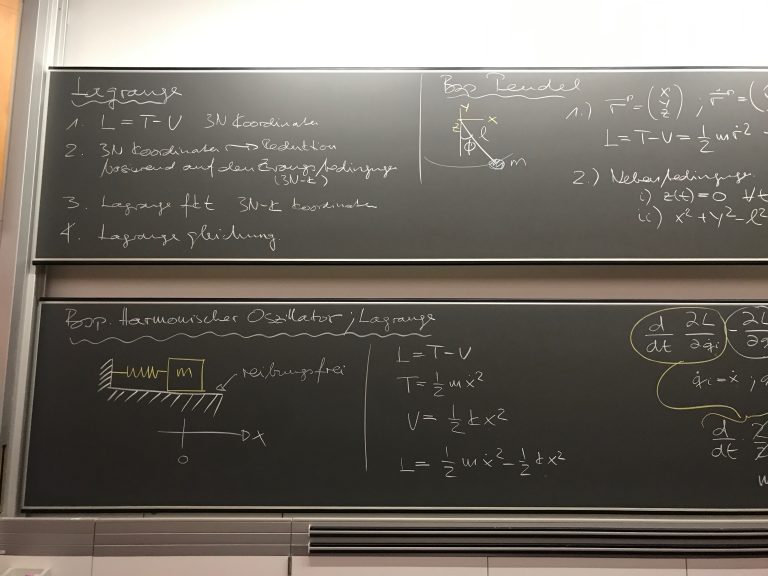 Lagrange
1. L = T - V 3N Koordinaten
2. 3N Koordinaten → Reduktion
basierend auf den Zwangsbedingungen
(3N-k)
3. Lagrange fkt 3N-k Koordinaten
4. Lagrange gleichung.
Bsp Pendel
y
z x
l
ϕ
m
1.) r⃗ⁿ = (x y z) ; ṙ⃗ⁿ = (
L = T - V = ½ mṙ² -
2.) Nebenbedingunge
i) z(t) = 0 ∀t
ii) x² + y² - l²
Bsp. Harmonischer Oszillator ; Lagrange
m
reibungsfrei
x
0
L = T - V
T = ½ mẋ²
V = ½ kx²
L = ½ mẋ² - ½ kx²
d/dt ∂L/∂q̇i - ∂L/∂q
q̇i = ẋ ; q
d/dt